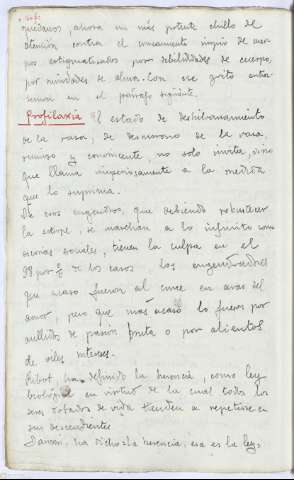 quédanos ahora un más potente chillo de
atención contra el cruzamiento impío de cuer
pos estigmatizados por debilidades de cuerpo,
por ruindades de alma. Con ese grito entra-
remos en el párrafo siguiente.
Profilaxia El estado de deshilvanamiento
de la raza, de desmorono de la raza,
ruinoso y convincente, no solo invita, sino
que llama imperiosamente a la medida
que lo suprima.
De esos engendros, que debiendo robustecer
la estirpe, se marchan a lo infinito como
escorias sociales, tienen la culpa en el
98 por % de los casos los engendradores
que acaso fueron al cruce en aras del
amor, pero que más acaso lo fueron por
aullidos de pasión bruta o por alientos
de viles intereses.
Ribot, ha definido la herencia, como ley
biológica en virtud de la cual todos los
seres dotados de vida tienden a repetirse en
sus descendientes
Darwin. ha dicho: La herencia, esa es la ley.